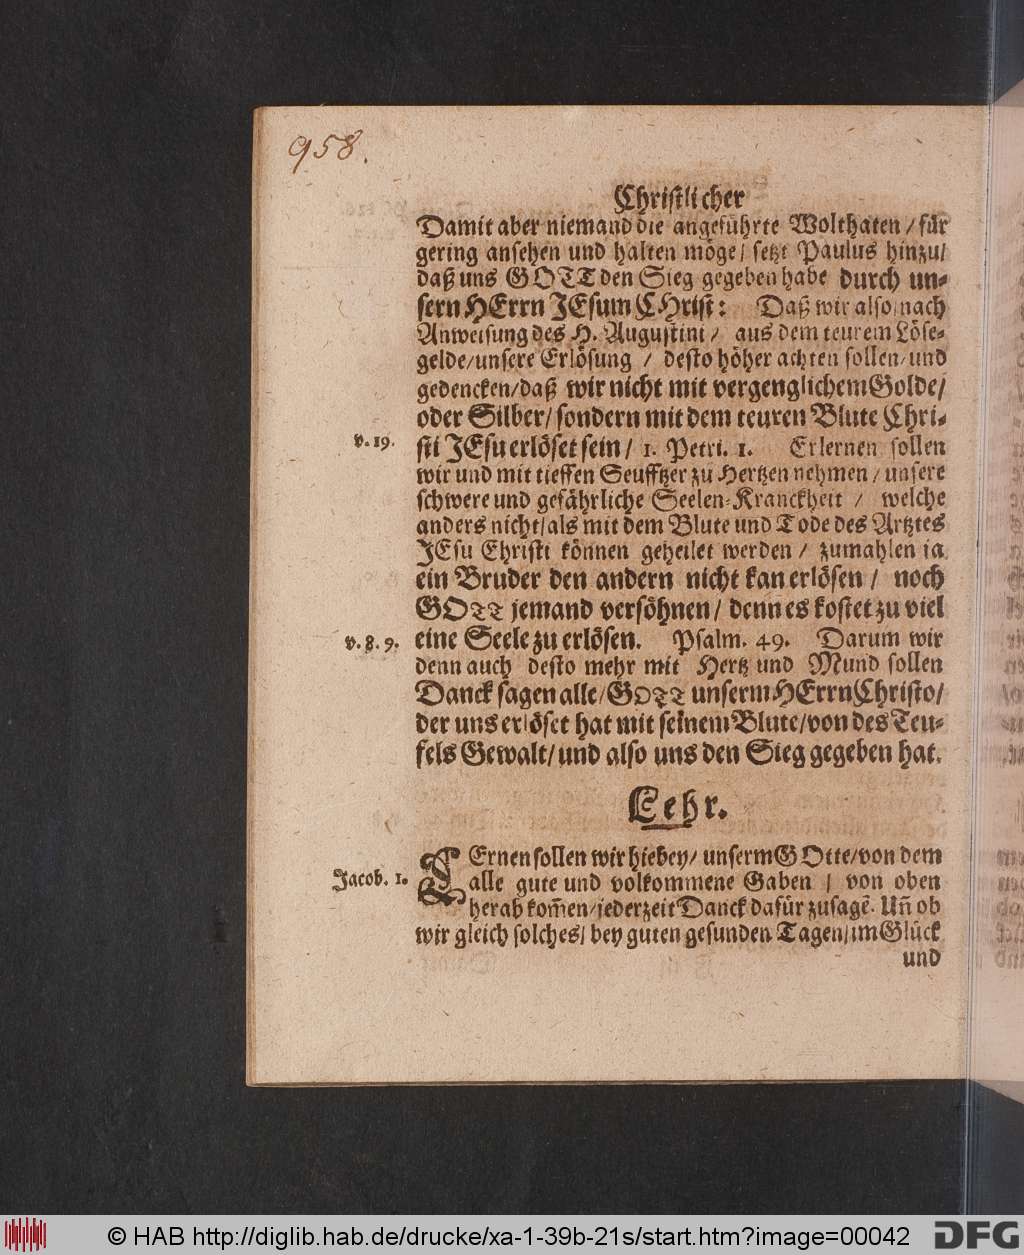 958.
Christlicher
Damit aber niemand die angeführte Wolthaten / für
gering ansehen und halten möge / setzt Paulus hinzu /
daß uns GOTT den Sieg gegeben habe durch un-
sern HErrn JEsum CHrist: Daß wir also nach
Anweisung des H. Augustini / aus dem teurem Löse-
gelde / unsere Erlösung / desto höher achten sollen / und
gedencken / daß wir nicht mit vergenglichem Golde /
oder Silber / sondern mit dem teuren Blute Chri-
v. 19. sti JEsu erlöset sein / 1. Petri. 1. Erlernen sollen
wir und mit tieffen Seufftzer zu Hertzen nehmen / unsere
schwere und gefährliche Seelen-Kranckheit / welche
anders nicht / als mit dem Blute und Tode des Artztes
JEsu Christi können geheilet werden / zumahlen ja
ein Bruder den andern nicht kan erlösen / noch
GOTT jemand versöhnen / denn es kostet zu viel
v. 8. 9. eine Seele zu erlösen. Psalm. 49. Darum wir
denn auch desto mehr mit Hertz und Mund sollen
Danck sagen alle / GOTT unserm HErrn Christo /
der uns erlöset hat mit seinem Blute / von des Teu-
fels Gewalt / und also uns den Sieg gegeben hat.
Lehr.
LErnen sollen wir hiebey / unserm GOtte / von dem
Jacob. 1. alle gute und volkommene Gaben / von oben
herab kom̃en / jederzeit Danck dafür zusagẽ. Uñ ob
wir gleich solches / bey guten gesunden Tagen / im Glück
und
© HAB http://diglib.hab.de/drucke/xa-1-39b-21s/start.htm?image=00042
DFG